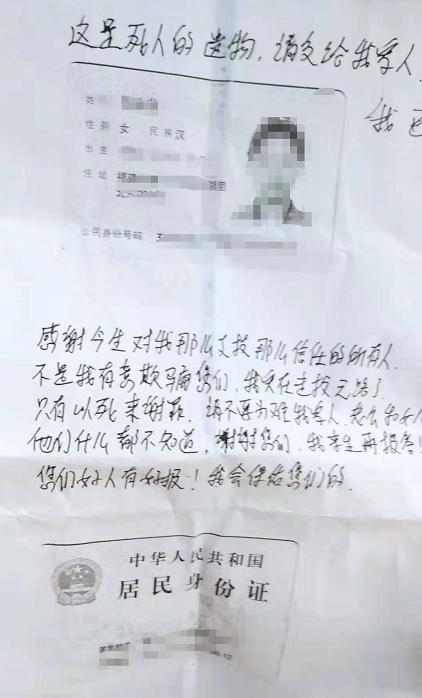 这是死人的遗物,请交给我家人
我
姓名
性别 女 民族 汉
出生
住址 福建
湖里
公民身份号码 3
感谢今生对我那么支持那么信任的所有人.
不是我有意欺骗您们,我实在走投无路了
只有以死来谢罪,请不要为难我家人,老公和女儿
他们什么都不知道,谢谢您们,我来生再报答!
您们好人有好报!我会保佑您们的.
中华人民共和国
居民身份证
12